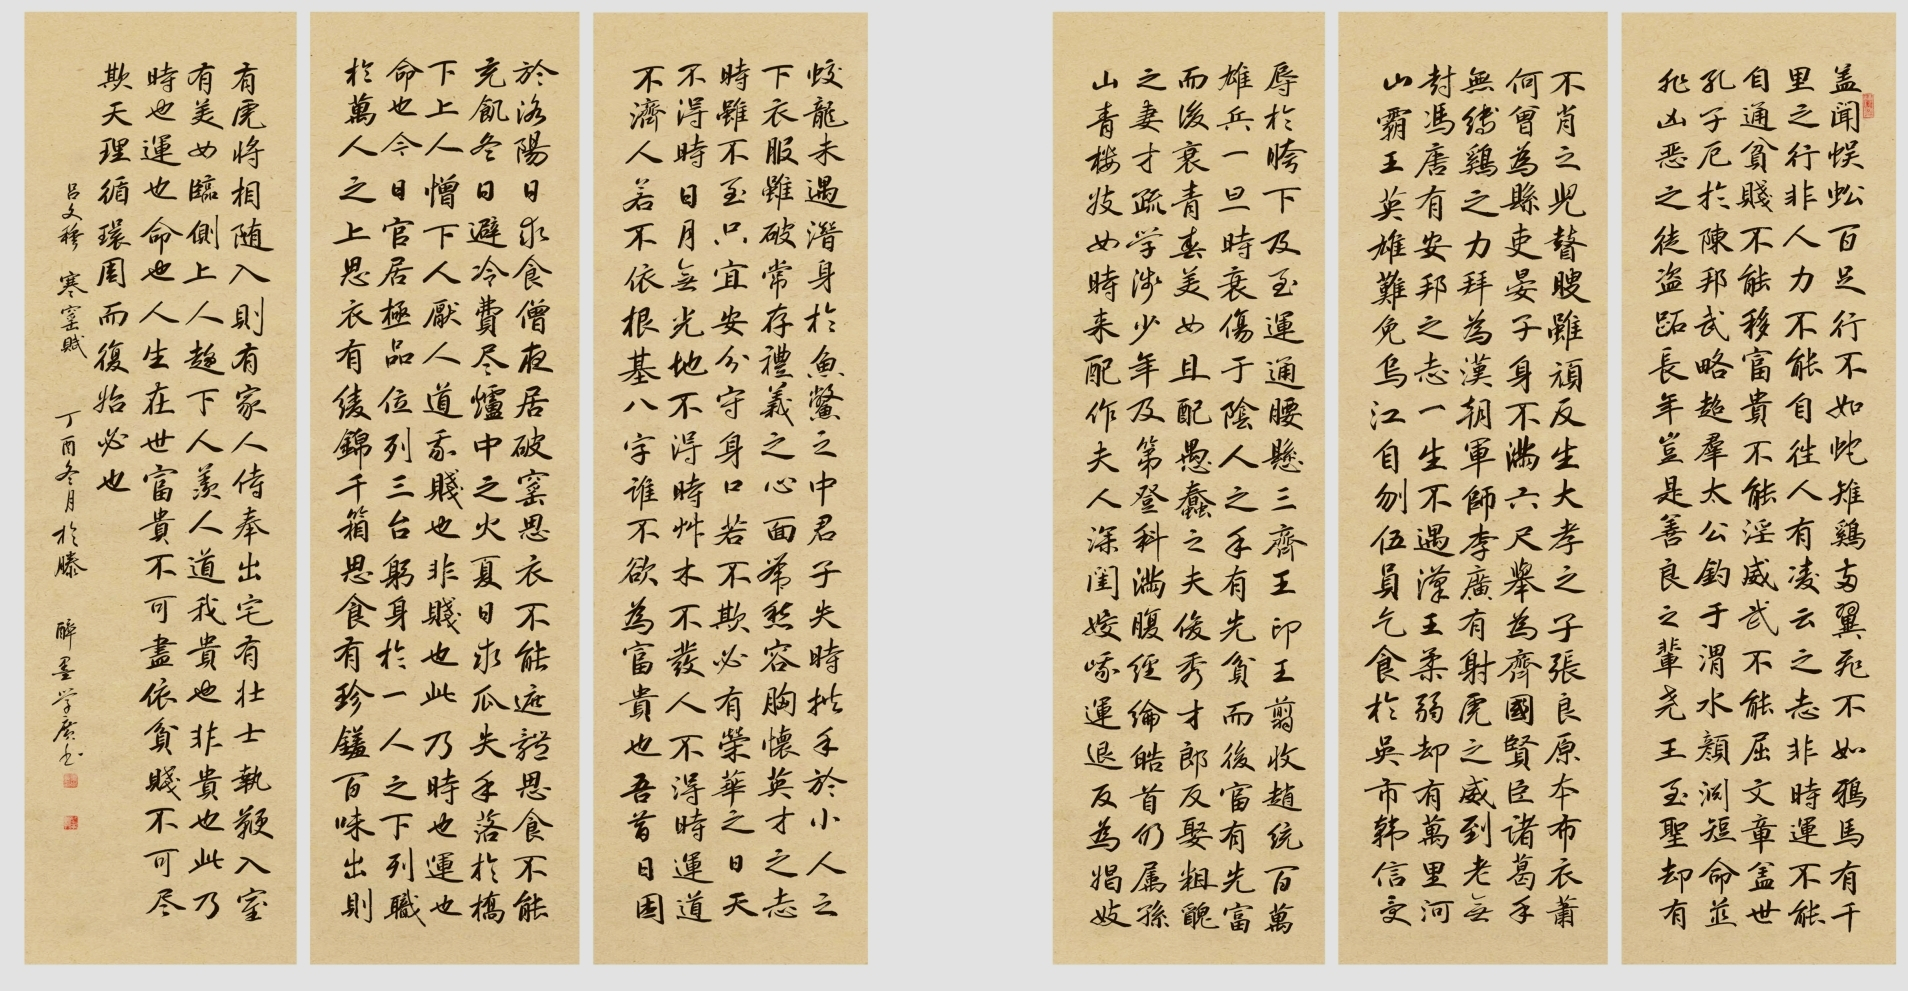 盖聞蜈蚣百足行不如蛇雉鷄两翼飛不如鴉馬有千
里之行非人力不能自往人有凌云之志非時運不能
自通貧賤不能移富貴不能淫威武不能屈文章盖世
孔子厄於陳邦武略超羣太公釣于渭水顏渊短命並
非凶恶之徒盗跖長年豈是善良之輩尧王至聖却有
不肖之兒瞽瞍雖頑反生大孝之子張良原本布衣蕭
何曾為縣吏晏子身不满六尺舉為齊國賢臣诸葛手
無缚鷄之力拜為漢朝軍師李廣有射虎之威到老無
封馮唐有安邦之志一生不遇漢王柔弱却有萬里河
山霸王英雄難免乌江自刎伍員乞食於吳市韩信受
辱於胯下及至運通腰懸三齊王印王翦收趙统百萬
雄兵一旦時衰傷于陰人之手有先貧而後富有先富
而後衰青春美女且配愚蠢之夫俊秀才郎反娶粗醜
之妻才疏学浅少年及第登科满腹经綸皓首仍属孫
山青楼妓女時来配作夫人深闺娇娥運退反為娼妓
蛟龍未遇潛身於魚鱉之中君子失時拱手於小人之
下衣服雖破常存禮義之心面帶愁容胸懷英才之志
時雖不至只宜安分守身口若不欺必有榮華之日天
不得時日月無光地不得時艸木不發人不得時運道
不濟人若不依根基八字谁不欲為富貴也吾昔日困
於洛陽日求食僧夜居破窑思衣不能遮體思食不能
充飢冬日避冷費尽爐中之火夏日求瓜失手落於橋
下上人憎下人厭人道我賤也非賤也此乃時也運也
命也今日官居極品位列三台躬身於一人之下列職
於萬人之上思衣有绫錦千箱思食有珍饈百味出則
有虎将相随入則有家人侍奉出宅有壮士執鞭入室
有美女臨側上人趋下人羡人道我貴也非貴也此乃
時也運也命也人生在世富貴不可盡依貧賤不可尽
欺天理循環周而復始必也
吕文穆 寒窑賦 丁酉冬月於滕 醉墨学廣书